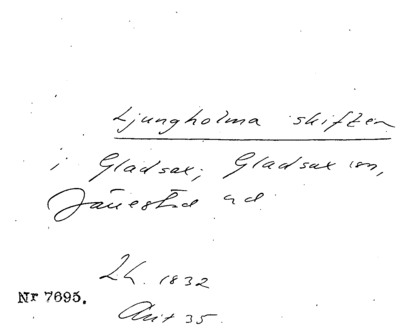 Ljungholma skiften
i Gladsax, Gladsax sn,
Järrestad hd
Lh. 1832
Nr 7695.
Akt 35.